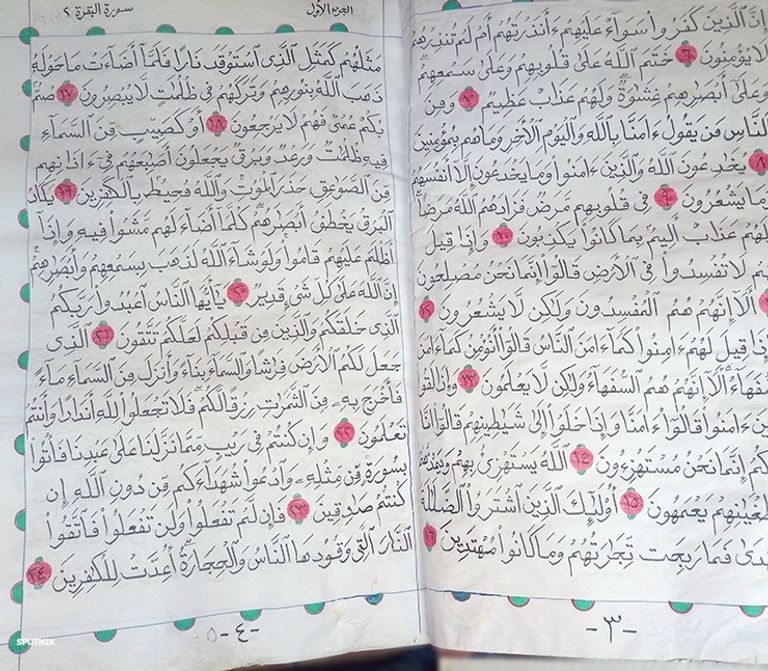 إِنَّ ٱلَّذِينَ كَفَرُوا۟ سَوَآءٌ عَلَيْهِمْ ءَأَنذَرْتَهُمْ أَمْ لَمْ تُنذِرْهُمْ
لَا يُؤْمِنُونَ ٦ خَتَمَ ٱللَّهُ عَلَىٰ قُلُوبِهِمْ وَعَلَىٰ سَمْعِهِمْ
وَعَلَىٰٓ أَبْصَٰرِهِمْ غِشَٰوَةٌ وَلَهُمْ عَذَابٌ عَظِيمٌ ٧ وَمِنَ
ٱلنَّاسِ مَن يَقُولُ ءَامَنَّا بِٱللَّهِ وَبِٱلْيَوْمِ ٱلْءَاخِرِ وَمَا هُم بِمُؤْمِنِينَ
٨ يُخَٰدِعُونَ ٱللَّهَ وَٱلَّذِينَ ءَامَنُوا۟ وَمَا يَخْدَعُونَ إِلَّآ أَنفُسَهُمْ
وَمَا يَشْعُرُونَ ٩ فِى قُلُوبِهِم مَّرَضٌ فَزَادَهُمُ ٱللَّهُ مَرَضًا
وَلَهُمْ عَذَابٌ أَلِيمٌۢ بِمَا كَانُوا۟ يَكْذِبُونَ ١٠ وَإِذَا قِيلَ
لَهُمْ لَا تُفْسِدُوا۟ فِى ٱلْأَرْضِ قَالُوٓا۟ إِنَّمَا نَحْنُ مُصْلِحُونَ
أَلَآ إِنَّهُمْ هُمُ ٱلْمُفْسِدُونَ وَلَٰكِن لَّا يَشْعُرُونَ ١٢
وَإِذَا قِيلَ لَهُمْ ءَامِنُوا۟ كَمَآ ءَامَنَ ٱلنَّاسُ قَالُوٓا۟ أَنُؤْمِنُ كَمَآ ءَامَنَ
ٱلسُّفَهَآءُ أَلَآ إِنَّهُمْ هُمُ ٱلسُّفَهَآءُ وَلَٰكِن لَّا يَعْلَمُونَ ١٣ وَإِذَا لَقُوا۟
ٱلَّذِينَ ءَامَنُوا۟ قَالُوٓا۟ ءَامَنَّا وَإِذَا خَلَوْا۟ إِلَىٰ شَيَٰطِينِهِمْ قَالُوٓا۟ إِنَّا
مَعَكُمْ إِنَّمَا نَحْنُ مُسْتَهْزِءُونَ ١٤ ٱللَّهُ يَسْتَهْزِئُ بِهِمْ وَيَمُدُّهُمْ
طُغْيَٰنِهِمْ يَعْمَهُونَ ١٥ أُو۟لَٰٓئِكَ ٱلَّذِينَ ٱشْتَرَوُا۟ ٱلضَّلَٰلَةَ
بِٱلْهُدَىٰ فَمَا رَبِحَت تِّجَٰرَتُهُمْ وَمَا كَانُوا۟ مُهْتَدِينَ ١٦
-٣-
الجزء الأول
سورة البقرة ٢
مَثَلُهُمْ كَمَثَلِ ٱلَّذِى ٱسْتَوْقَدَ نَارًا فَلَمَّآ أَضَآءَتْ مَا حَوْلَهُۥ
ذَهَبَ ٱللَّهُ بِنُورِهِمْ وَتَرَكَهُمْ فِى ظُلُمَٰتٍ لَّا يُبْصِرُونَ ١٧ صُمٌّۢ
بُكْمٌ عُمْىٌ فَهُمْ لَا يَرْجِعُونَ ١٨ أَوْ كَصَيِّبٍ مِّنَ ٱلسَّمَآءِ
فِيهِ ظُلُمَٰتٌ وَرَعْدٌ وَبَرْقٌ يَجْعَلُونَ أَصَٰبِعَهُمْ فِىٓ ءَاذَانِهِم
مِّنَ ٱلصَّوَٰعِقِ حَذَرَ ٱلْمَوْتِ وَٱللَّهُ مُحِيطٌۢ بِٱلْكَٰفِرِينَ ١٩ يَكَادُ
ٱلْبَرْقُ يَخْطَفُ أَبْصَٰرَهُمْ كُلَّمَآ أَضَآءَ لَهُم مَّشَوْا۟ فِيهِ وَإِذَآ
أَظْلَمَ عَلَيْهِمْ قَامُوا۟ وَلَوْ شَآءَ ٱللَّهُ لَذَهَبَ بِسَمْعِهِمْ وَأَبْصَٰرِهِمْ
إِنَّ ٱللَّهَ عَلَىٰ كُلِّ شَىْءٍ قَدِيرٌ ٢٠ يَٰٓأَيُّهَا ٱلنَّاسُ ٱعْبُدُوا۟ رَبَّكُمُ
ٱلَّذِى خَلَقَكُمْ وَٱلَّذِينَ مِن قَبْلِكُمْ لَعَلَّكُمْ تَتَّقُونَ ٢١ ٱلَّذِى
جَعَلَ لَكُمُ ٱلْأَرْضَ فِرَٰشًا وَٱلسَّمَآءَ بِنَآءً وَأَنزَلَ مِنَ ٱلسَّمَآءِ مَآءً
فَأَخْرَجَ بِهِۦ مِنَ ٱلثَّمَرَٰتِ رِزْقًا لَّكُمْ فَلَا تَجْعَلُوا۟ لِلَّهِ أَندَادًا وَأَنتُمْ
تَعْلَمُونَ ٢٢ وَإِن كُنتُمْ فِى رَيْبٍ مِّمَّا نَزَّلْنَا عَلَىٰ عَبْدِنَا فَأْتُوا۟
بِسُورَةٍ مِّن مِّثْلِهِۦ وَٱدْعُوا۟ شُهَدَآءَكُم مِّن دُونِ ٱللَّهِ إِن
كُنتُمْ صَٰدِقِينَ ٢٣ فَإِن لَّمْ تَفْعَلُوا۟ وَلَن تَفْعَلُوا۟ فَٱتَّقُوا۟
ٱلنَّارَ ٱلَّتِى وَقُودُهَا ٱلنَّاسُ وَٱلْحِجَارَةُ أُعِدَّتْ لِلْكَٰفِرِينَ ٢٤
-٤-
SPUTNIK